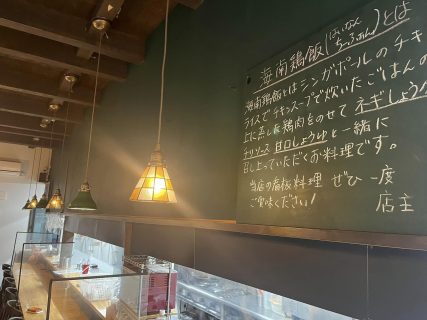 海南鶏飯(はいなんちーふぁん)とは
海南鶏飯とはシンガポールのチキ
ライスでチキンスープで炊いたごはんの
上に蒸し鶏肉をのせてネギしょうが
チリソース 甘口しょうゆと一緒に
召し上っていただくお料理です。
当店の看板料理 ぜひ一度
ご賞味ください!
店主